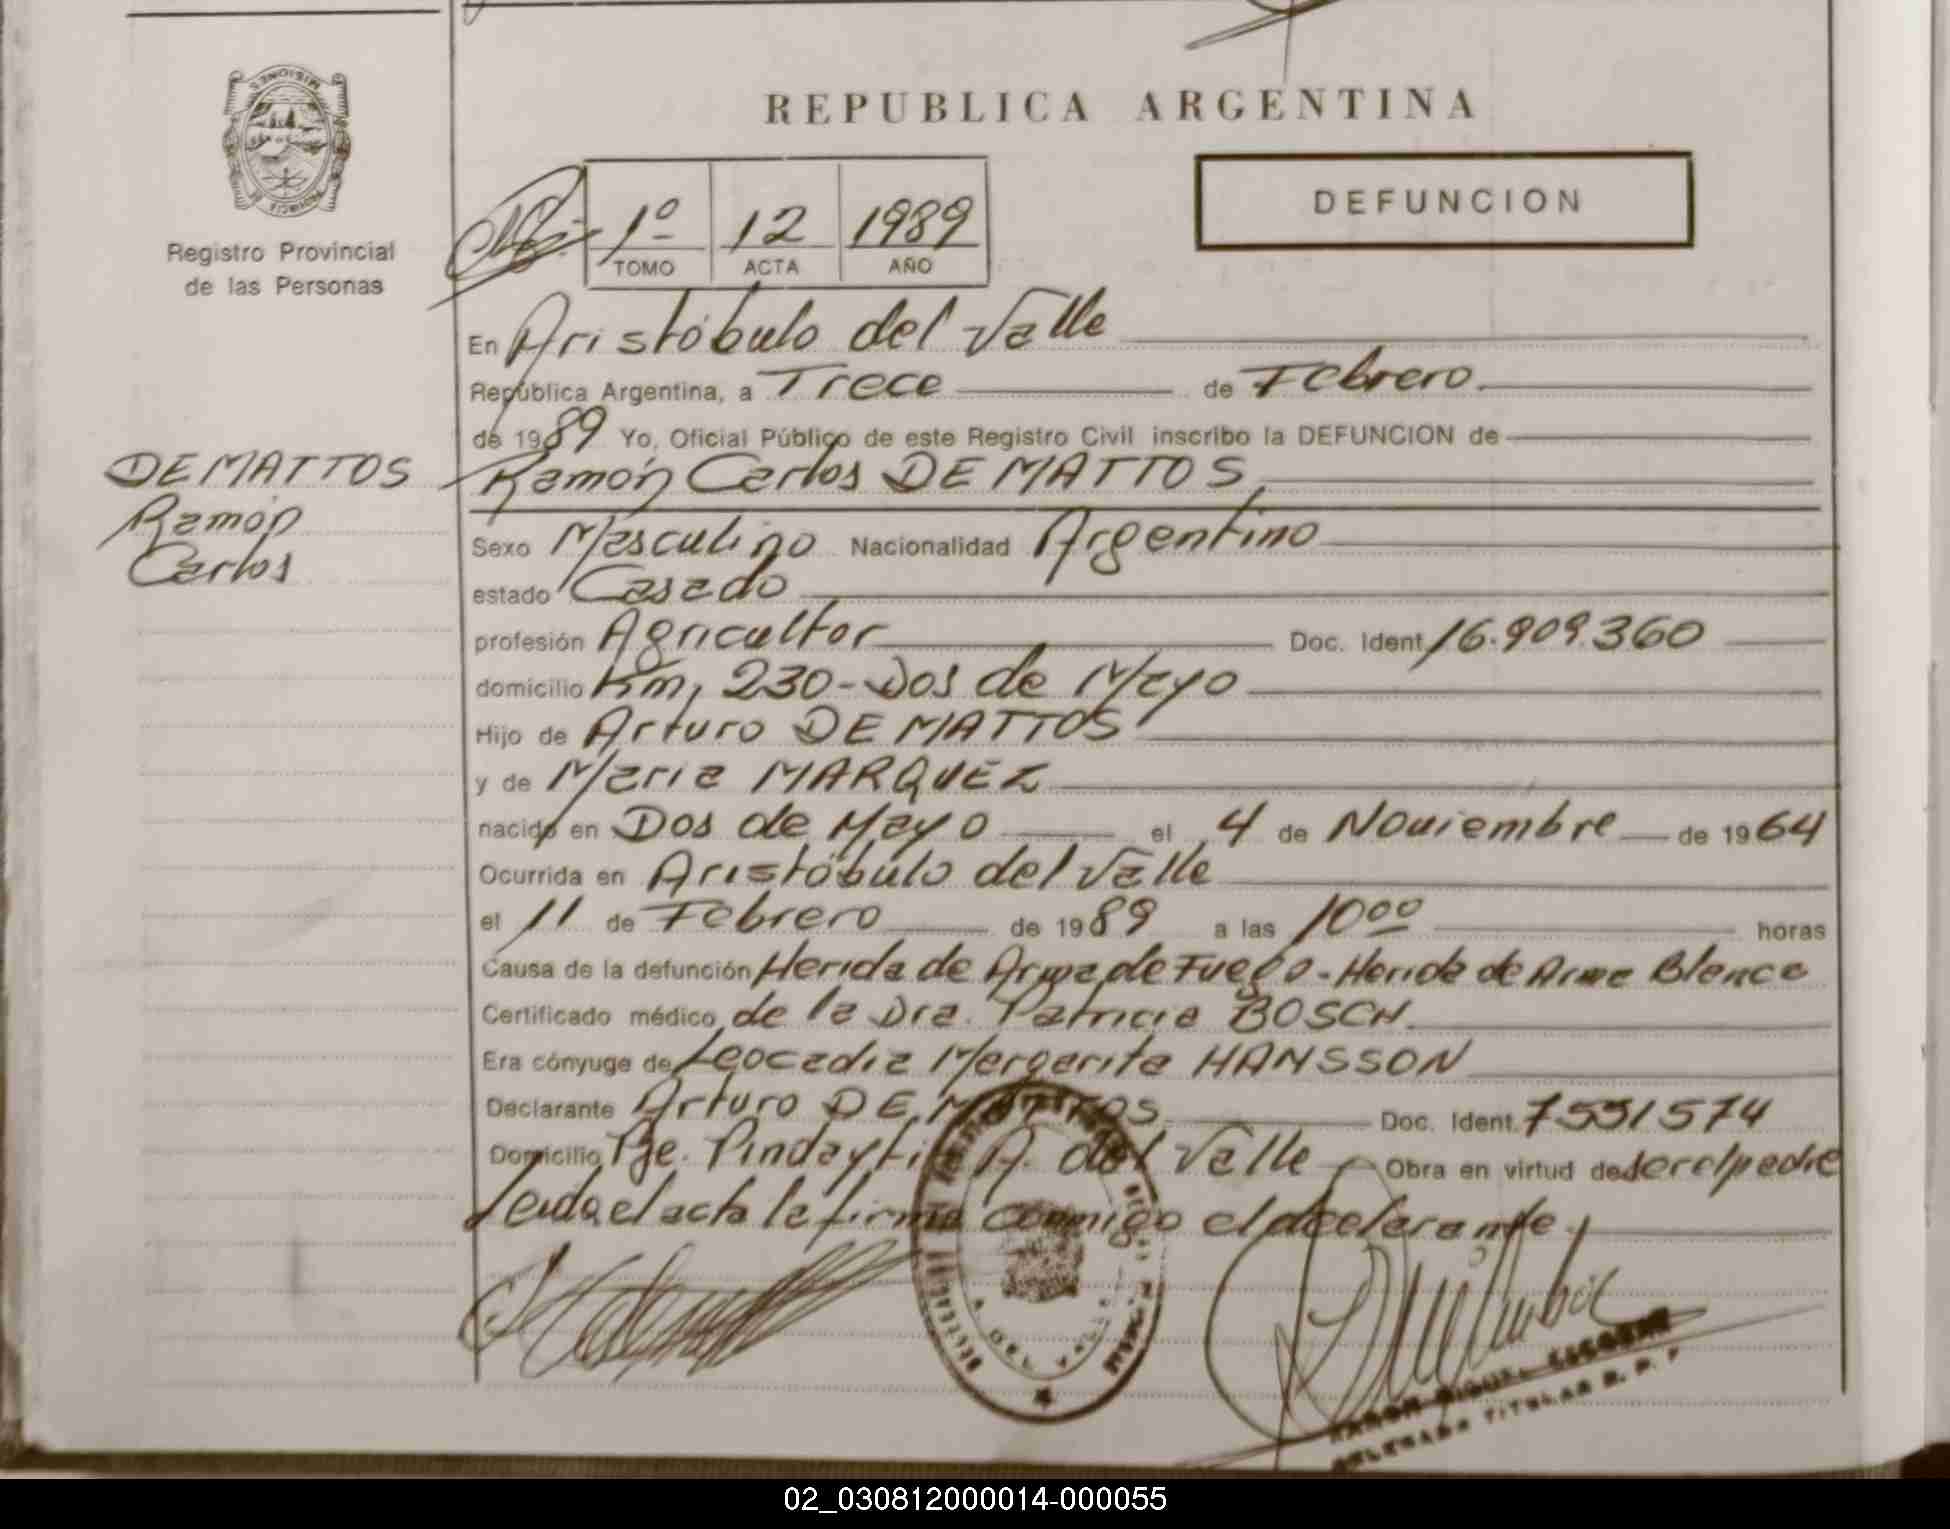 MISIONES
PROVINCIA DE
Registro Provincial
de las Personas
DE MATTOS
Ramón
Carlos
REPUBLICA ARGENTINA
1º 12 1989
TOMO ACTA AÑO
DEFUNCION
En Aristóbulo del Valle
República Argentina, a Trece de Febrero
de 1989 Yo, Oficial Público de este Registro Civil inscribo la DEFUNCION de
Ramón Carlos DE MATTOS
Sexo Masculino Nacionalidad Argentino
estado Casado
profesión Agricultor Doc. Ident. 16.909.360
domicilio Km, 230-Dos de Mayo
Hijo de Arturo DE MATTOS
y de Maria MARQUEZ
nacido en Dos de Mayo el 4 de Noviembre de 1964
Ocurrida en Aristóbulo del Valle
el 11 de Febrero de 1989 a las 10⁰⁰ horas
Causa de la defunción Herida de Arma de Fuego - Herida de Arma Blanca
Certificado médico de la Dra. Patricia BOSCH
Era cónyuge de Leocadia Margarita HANSSON
Declarante Arturo DE MATTOS Doc. Ident. 7551574
Domicilio Pje. Pindayti A. del Valle Obra en virtud de ser el padre
Leida el acta la firma conmigo el declarante
RAMON MIGUEL ESCOBAR
DELEGADO TITULAR R. P. P.
02_030812000014-000055